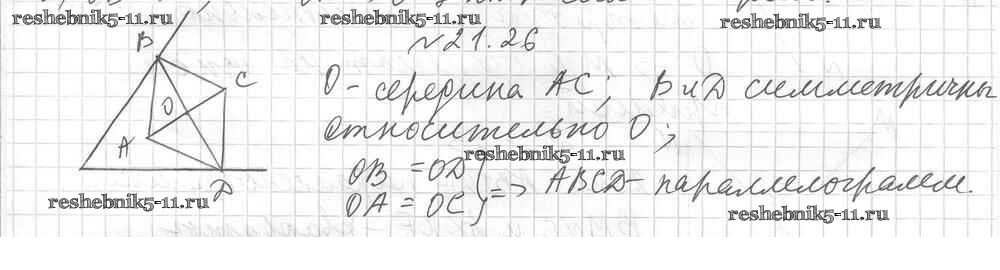 reshebnik5-11.ru
reshebnik5-11.ru
№21.26
B
C
O
A
D
O - середина AC; B и D симметричны
относительно O;
reshebnik5-11.ru
OB = OD
OA = OC } => ABCD - параллелограмм.
reshebnik5-11.ru
reshebnik5-11.ru